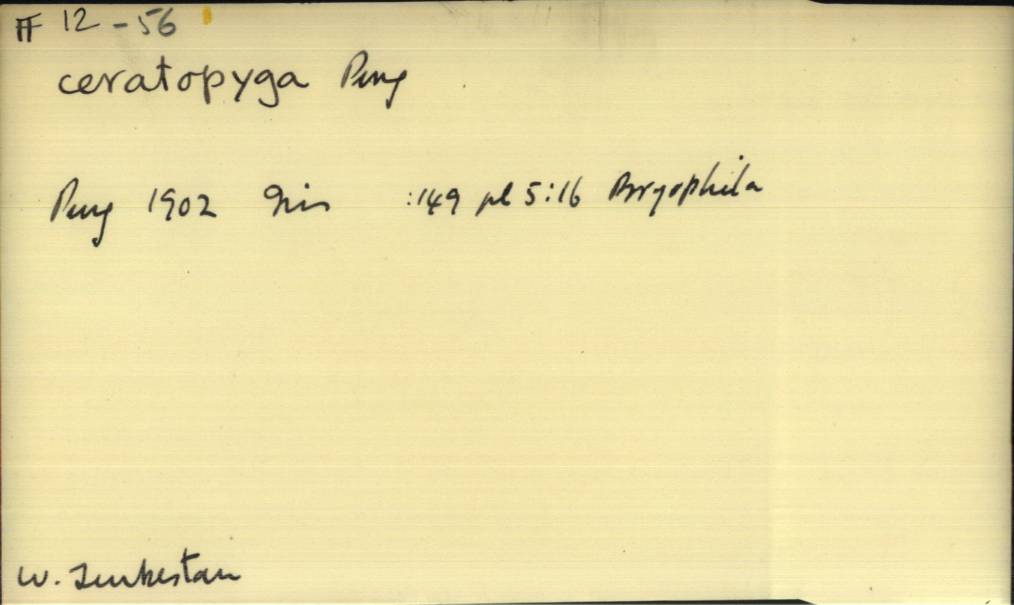 FF 12-56
ceratopyga Pung
Pung 1902 Iris :149 pl 5:16 Bryophila
W. Turkestan